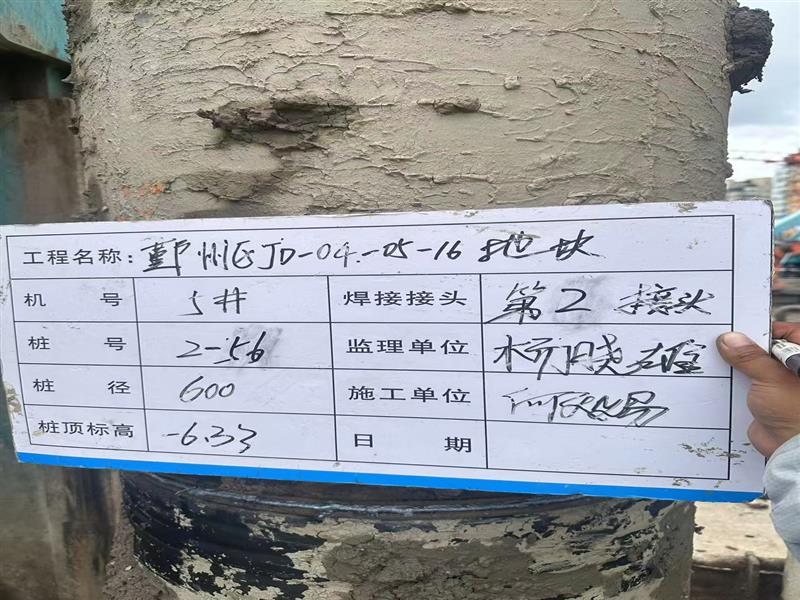 工程名称：鄞州区JD-04-05-16地块
机号 5# 焊接接头 第2接头
桩号 2-56 监理单位
桩径 600 施工单位
桩顶标高 -6.33 日期